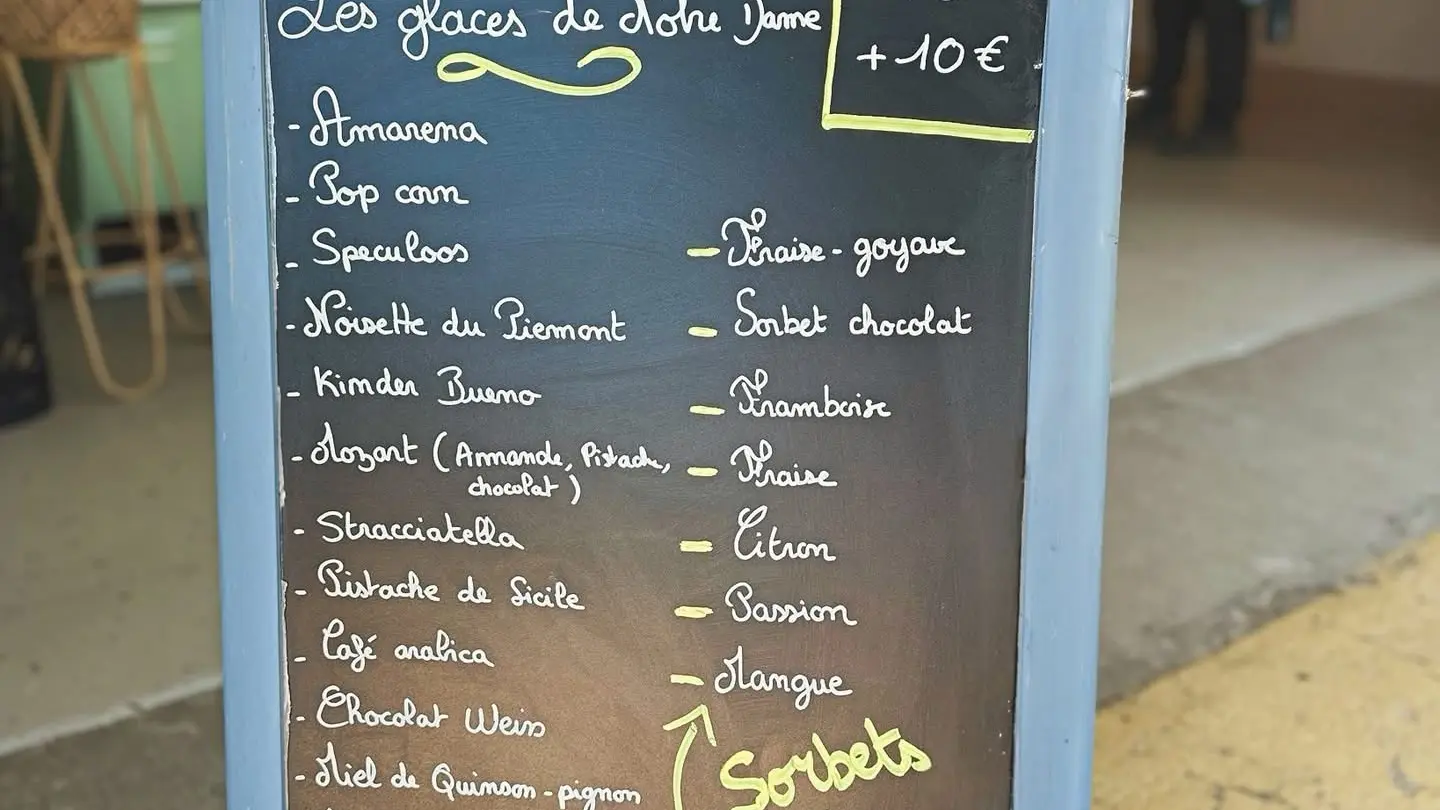 Les glaces de Notre Dame
+10€
- Amarena
- Pop corn
- Speculoos
- Noisette du Piemont
- Kinder Bueno
- Mozart (Armande, Pistache,
chocolat)
- Stracciatella
- Pistache de Sicile
- Café arabica
- Chocolat Weiss
- Miel de Quinson-pignon
- Fraise-goyave
- Sorbet chocolat
- Framboise
- Fraise
- Citron
- Passion
- Mangue
Sorbets